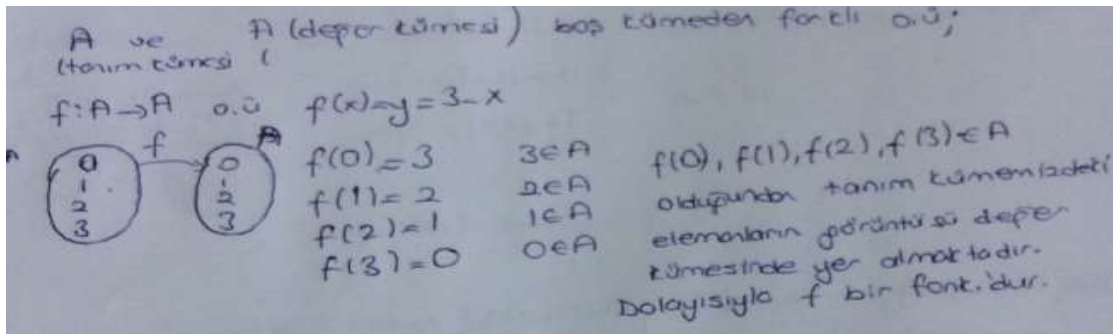 A ve A (değer kümesi) boş kümeden farklı o.ü;
(tanım kümesi (
f: A→A o.ü f(x)=y=3-x
f A
0 0
1 1
2 2
3 3
f(0)=3 3∈A
f(1)=2 2∈A
f(2)=1 1∈A
f(3)=0 0∈A
f(0), f(1), f(2), f(3) ∈ A
olduğundan tanım kümemizdeki
elemanların görüntüsü değer
kümesinde yer almaktadır.
Dolayısıyla f bir fonk.'dur.